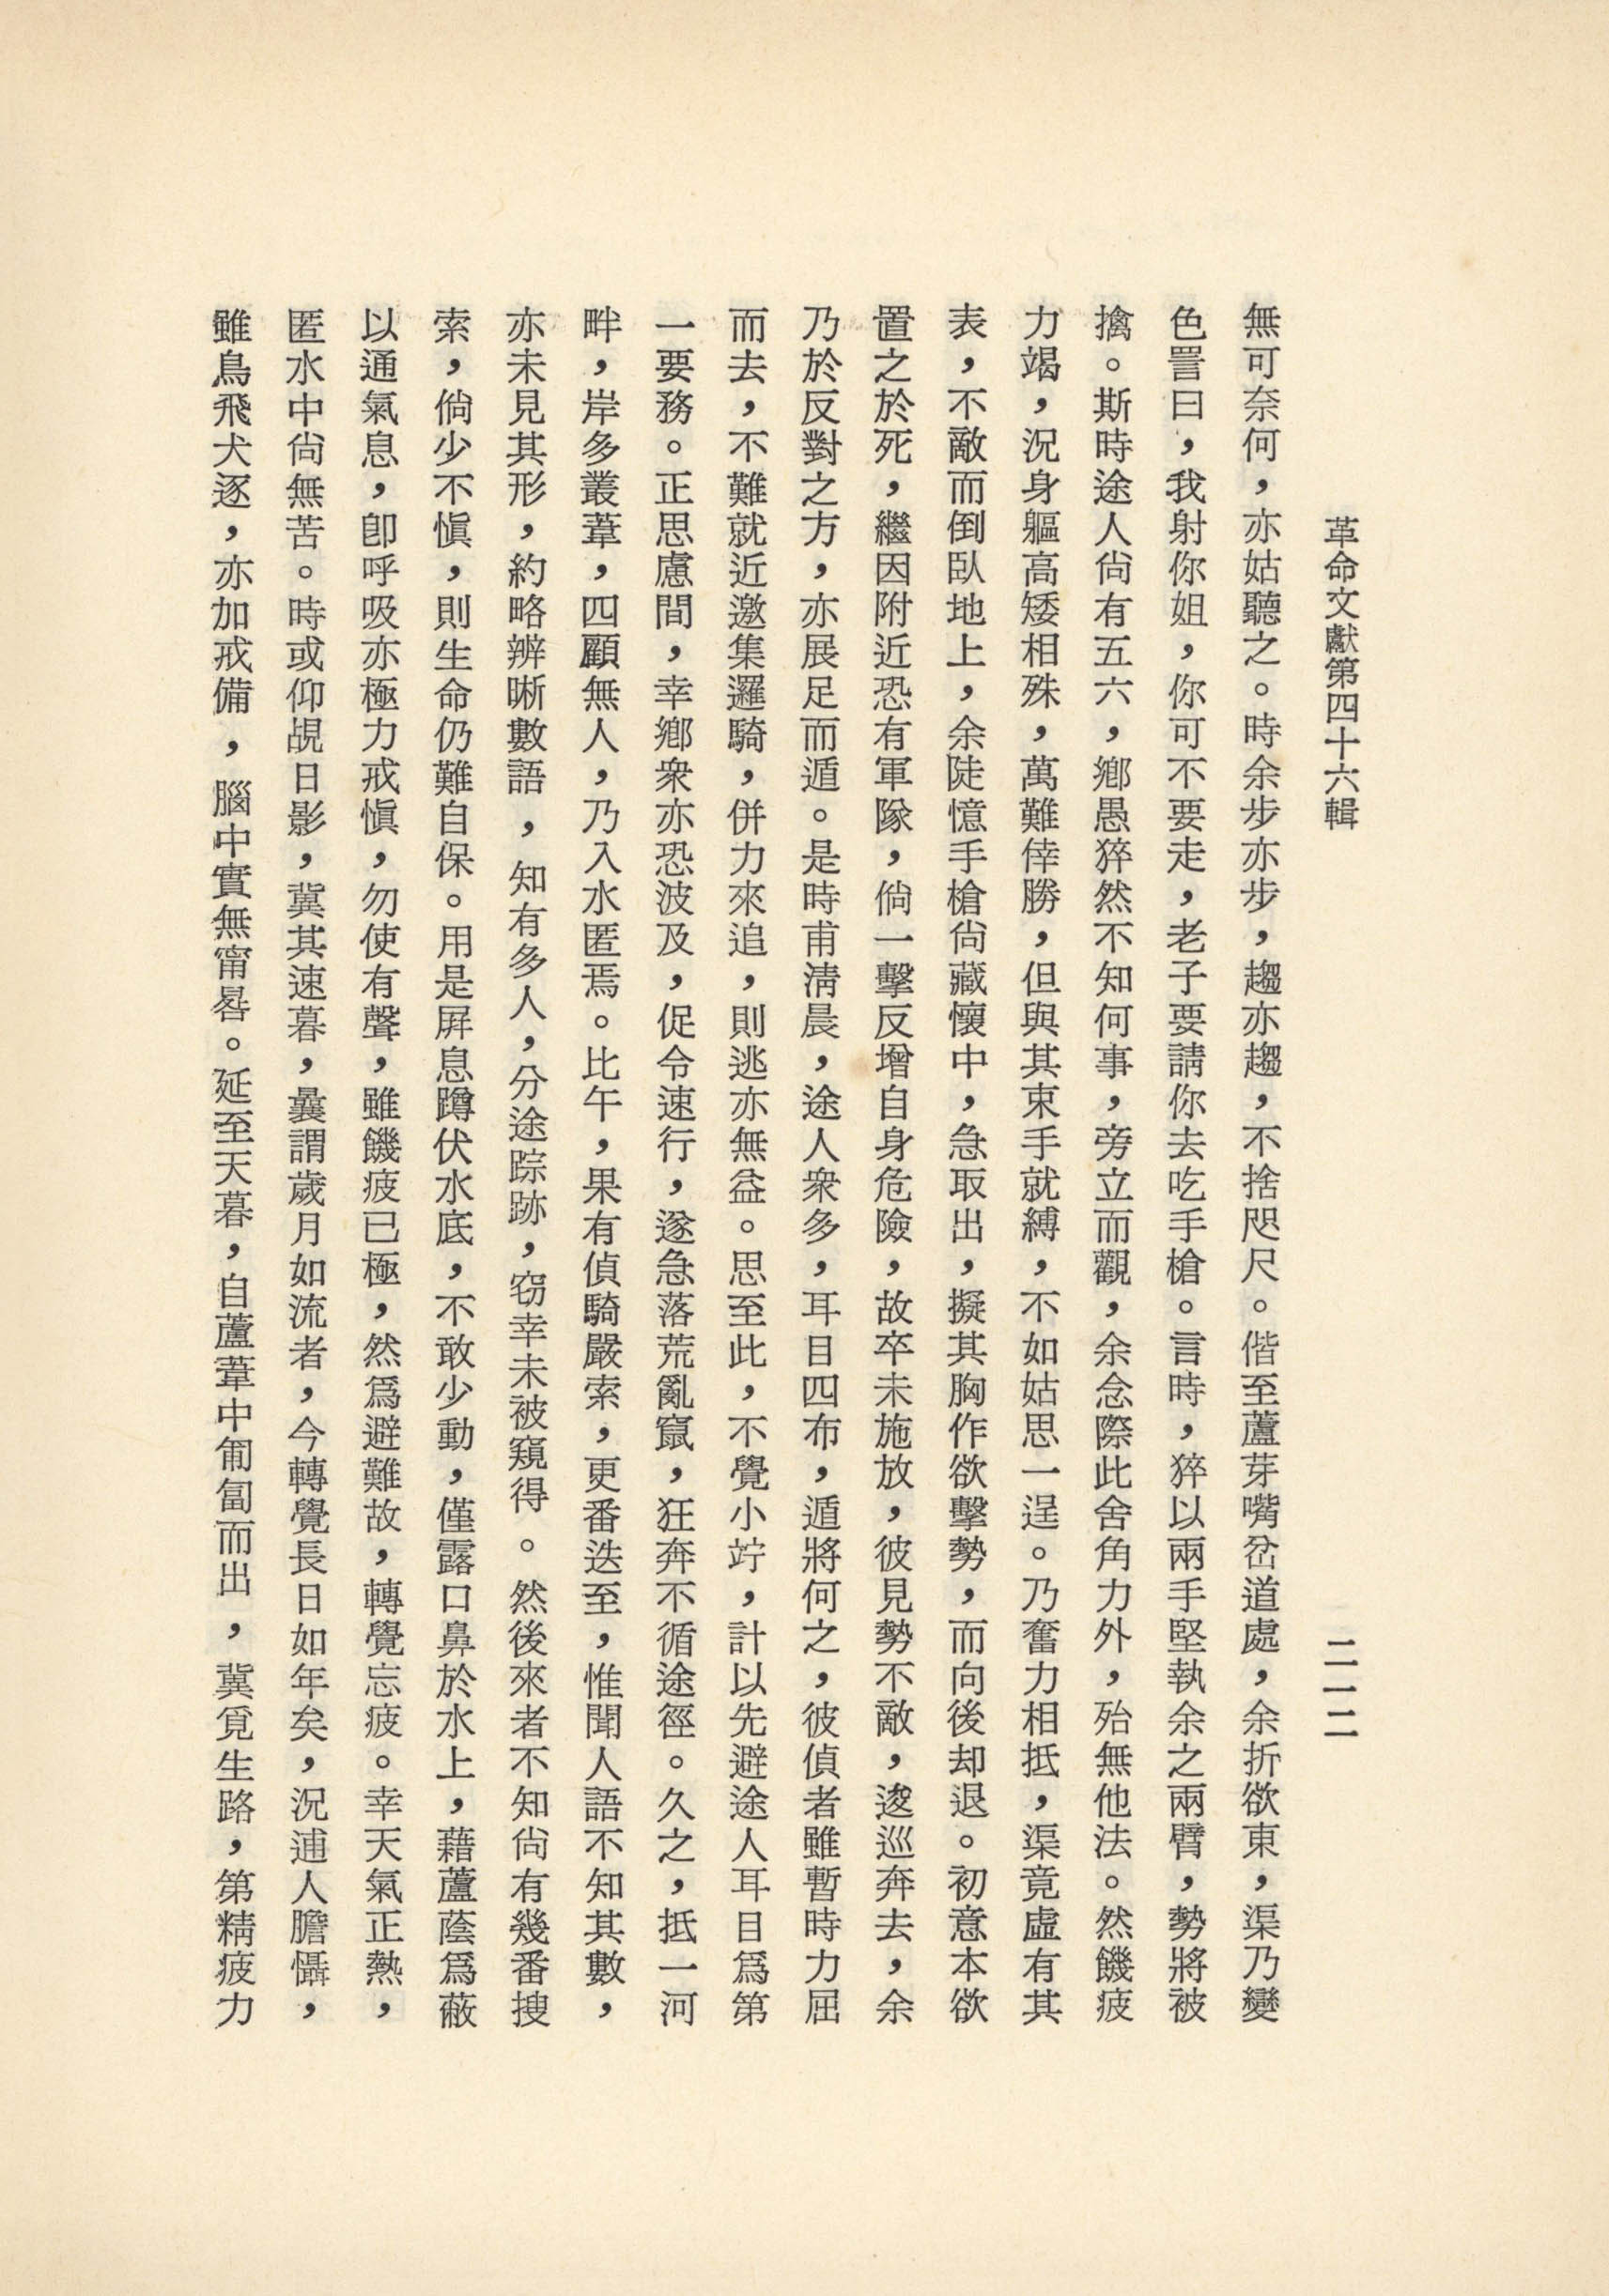 革命文獻第四十六輯
二一二
無可奈何，亦姑聽之。時余步亦步，趨亦趨，不捨咫尺。偕至蘆芽嘴岔道處，余折欲東，渠乃變
色詈曰，我射你姐，你可不要走，老子要請你去吃手槍。言時，猝以兩手堅執余之兩臂，勢將被
擒。斯時途人尙有五六，鄉愚猝然不知何事，旁立而觀，余念際此舍角力外，殆無他法。然饑疲
力竭，況身軀高矮相殊，萬難倖勝，但與其束手就縛，不如姑思一逞。乃奮力相抵，渠竟虛有其
表，不敵而倒臥地上，余陡憶手槍尙藏懷中，急取出，擬其胸作欲擊勢，而向後却退。初意本欲
置之於死，繼因附近恐有軍隊，倘一擊反增自身危險，故卒未施放，彼見勢不敵，逡巡奔去，余
乃於反對之方，亦展足而遁。是時甫淸晨，途人衆多，耳目四布，遁將何之，彼偵者雖暫時力屈
而去，不難就近邀集邏騎，併力來追，則逃亦無益。思至此，不覺小竚，計以先避途人耳目爲第
一要務。正思慮間，幸鄉衆亦恐波及，促令速行，遂急落荒亂竄，狂奔不循途徑。久之，抵一河
畔，岸多叢葦，四顧無人，乃入水匿焉。比午，果有偵騎嚴索，更番迭至，惟聞人語不知其數，
亦未見其形，約略辨晰數語，知有多人，分途踪跡，窃幸未被窺得。然後來者不知尙有幾番搜
索，倘少不愼，則生命仍難自保。用是屛息蹲伏水底，不敢少動，僅露口鼻於水上，藉蘆蔭爲蔽
以通氣息，卽呼吸亦極力戒愼，勿使有聲，雖饑疲已極，然爲避難故，轉覺忘疲。幸天氣正熱，
匿水中尙無苦。時或仰覘日影，冀其速暮，曩謂歲月如流者，今轉覺長日如年矣，況逋人膽懾，
雖鳥飛犬逐，亦加戒備，腦中實無甯晷。延至天暮，自蘆葦中匍匐而出，冀覓生路，第精疲力